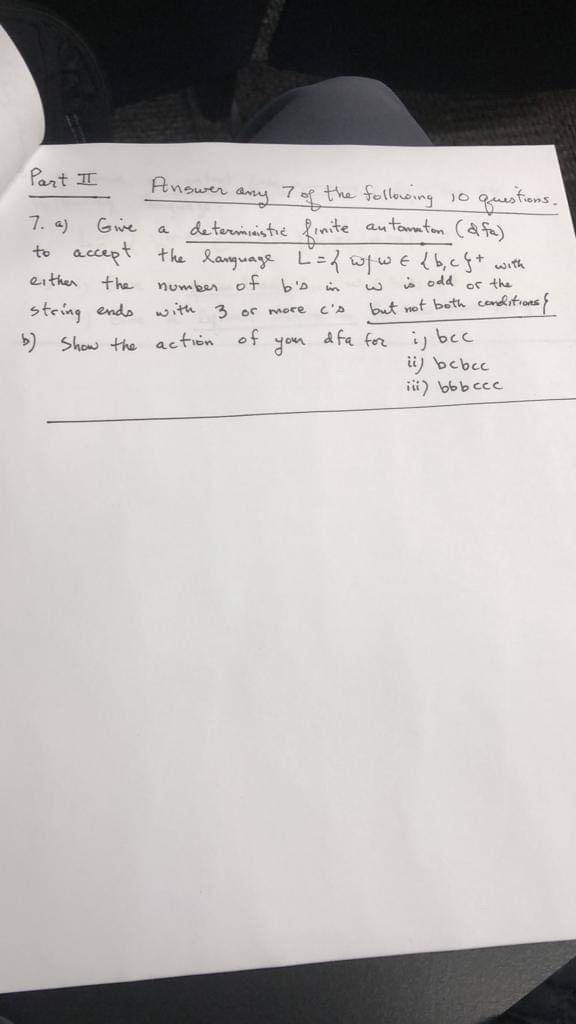 Part II Answer any 7 of the following 10 questions.
7. a) Give a deterministic finite automaton (dfa)
to accept the language L = { w | w ∈ {b,c}+ with
either the number of b's in w is odd or the
string ends with 3 or more c's but not both conditions}
b) Show the action of your dfa for i) bcc
ii) bcbcc
iii) bbbccc